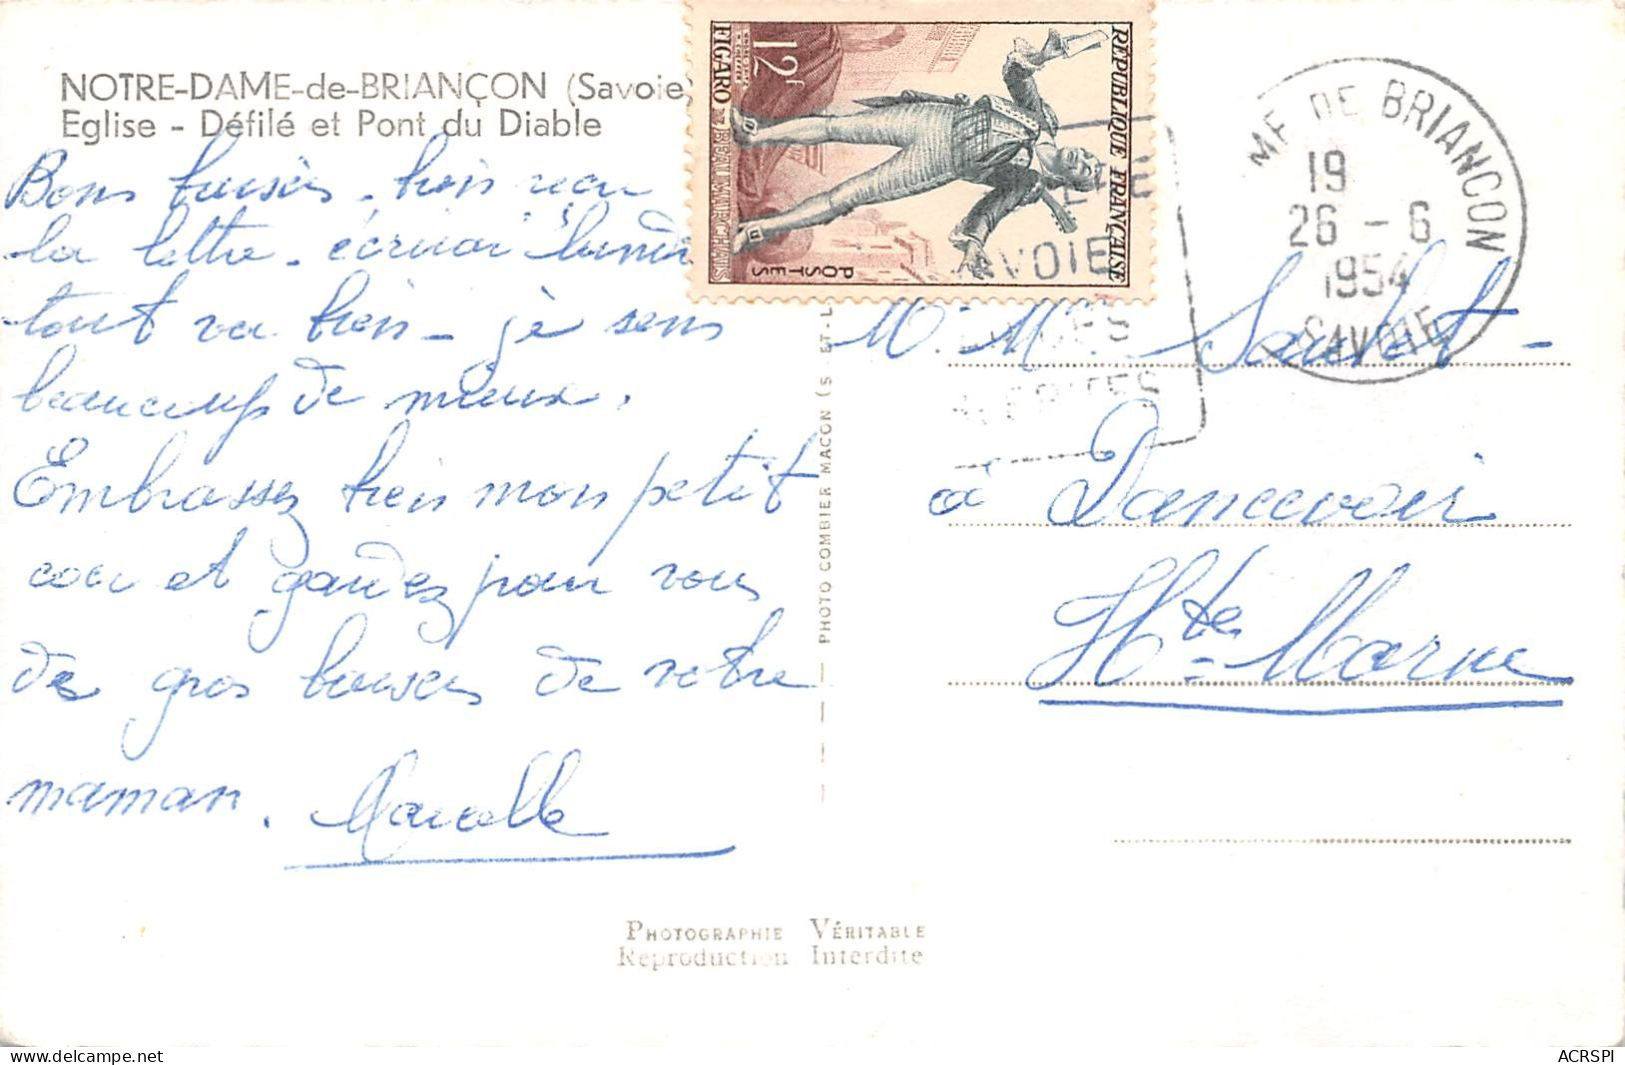 NOTRE-DAME-de-BRIANÇON (Savoie)
Eglise - Défilé et Pont du Diable
Bons baisers. bien reçu
la lettre. écrirai lundi
tout va bien - je sens
beaucoup de mieux.
Embrassez bien mon petit
coco et gardez pour vous
de gros baisers de votre
maman. Marcelle
12f
FIGARO DE BEAUMARCHAIS
REPUBLIQUE FRANÇAISE
POSTES
DE BRIANCON
19
26 - 6
1954
SAVOIE
SAVOIE
PHOTO COMBIER MACON (S ET-L
à Dancevoir
Hte-Marne
PHOTOGRAPHIE VÉRITABLE
Reproduction Interdite
ACRSPI